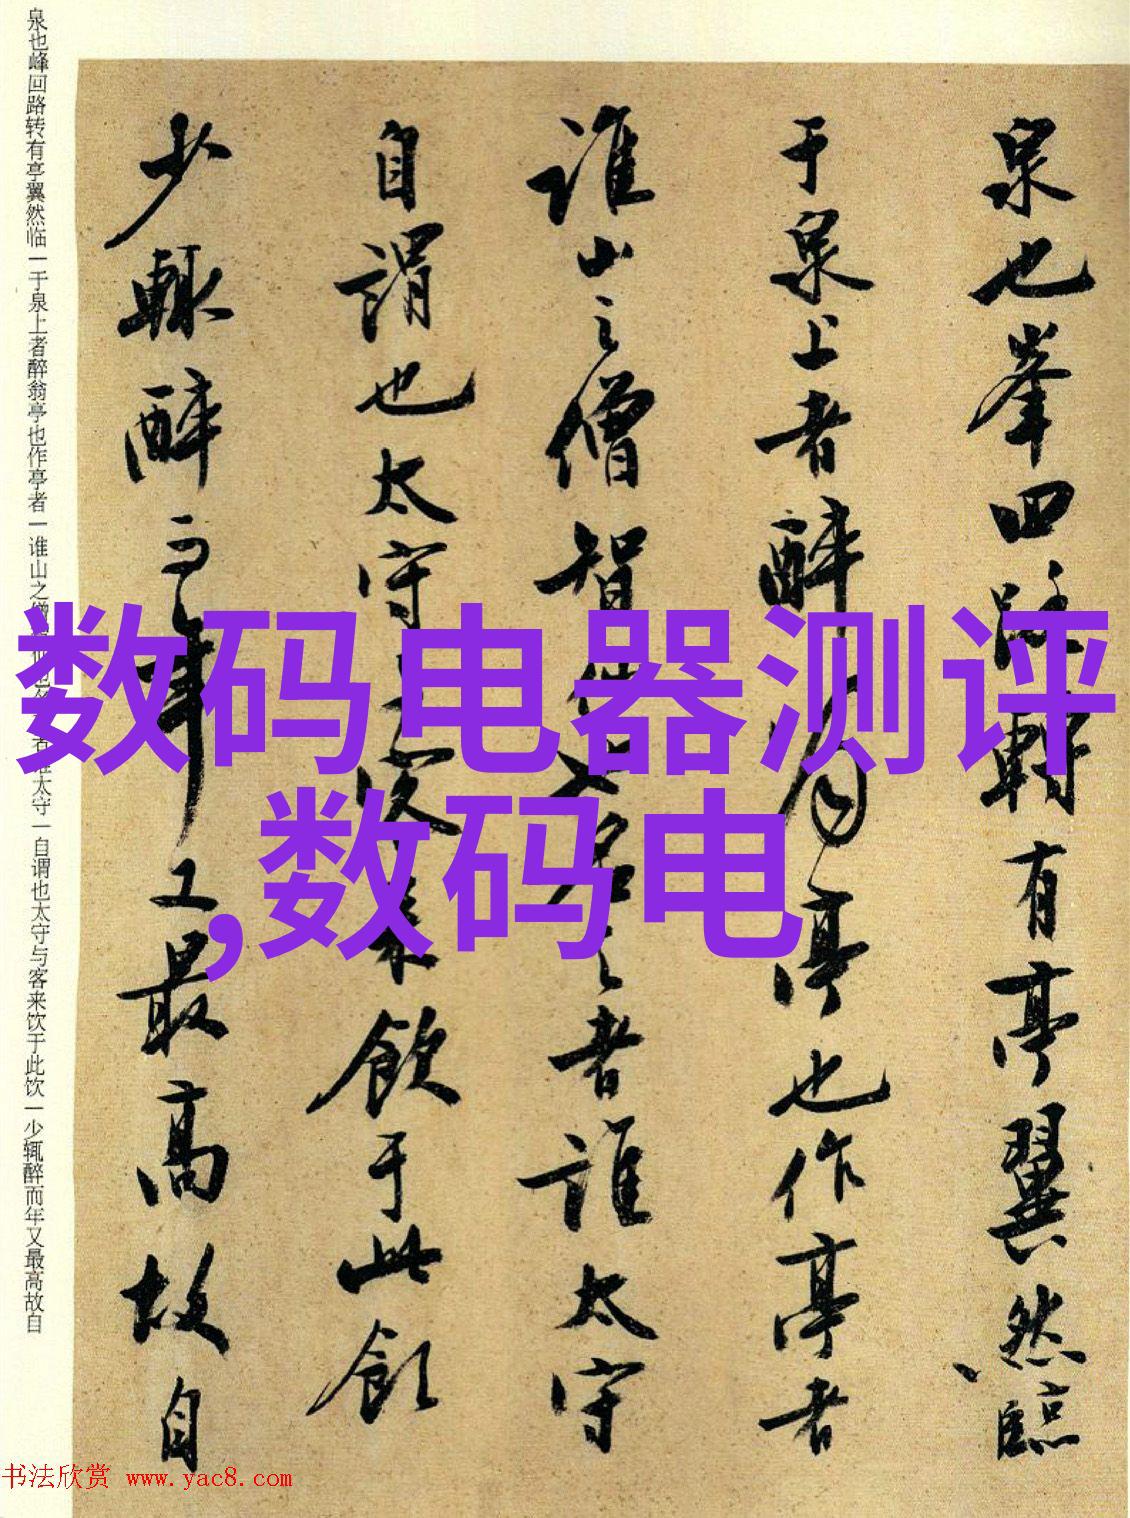 泉也峯回路轉有亭翼然臨
于泉上者醉翁亭也作亭者
誰山之僧智僊也名之者誰太守
自謂也太守與客來飲于此飲
少輒醉而年又最高故自
泉也峰回路转有亭翼然临一于泉上者醉翁亭也作亭者一谁山之僧智仙也名之者谁太守一自谓也太守与客来饮于此饮一少辄醉而年又最高故自
数码电器测评
,数码电
书法欣赏 www.yac8.com